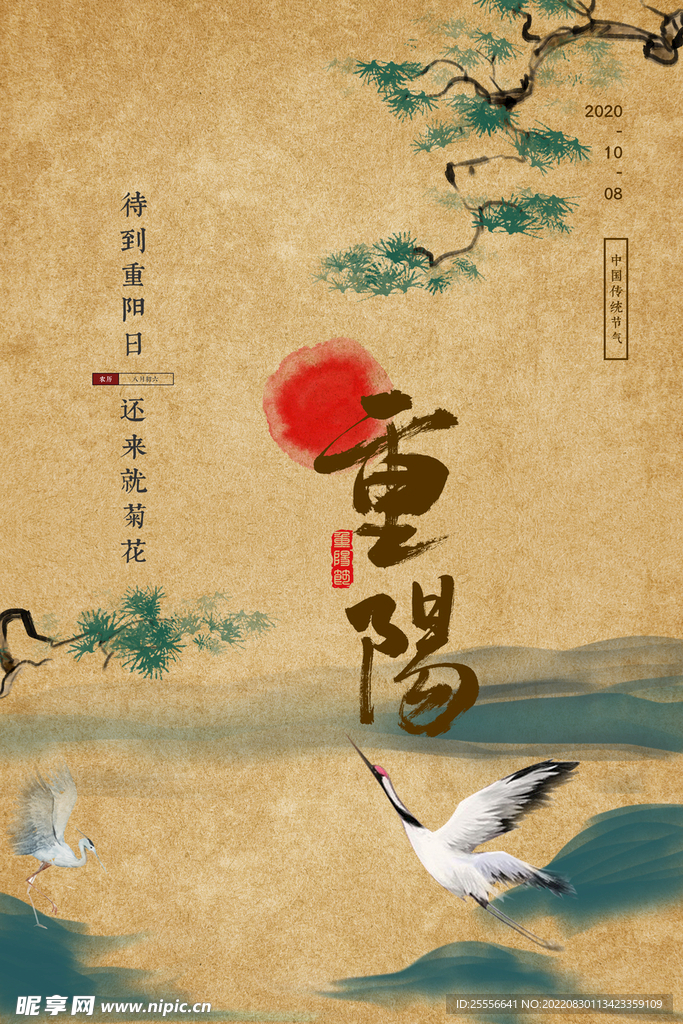 2020
-
10
-
08
中国传统节气
待到重阳日
农历 八月初六
还来就菊花
重陽
重陽節
昵享网 www.nipic.cn
ID:25556641 NO:20220830113423359109